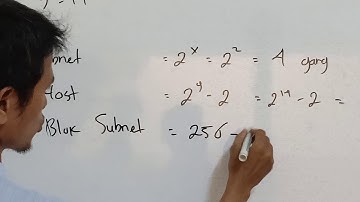 = 2^x = 2^2 = 4 yang
Host = 2^y - 2 = 2^14 - 2 =
Blok Subnet = 256 -